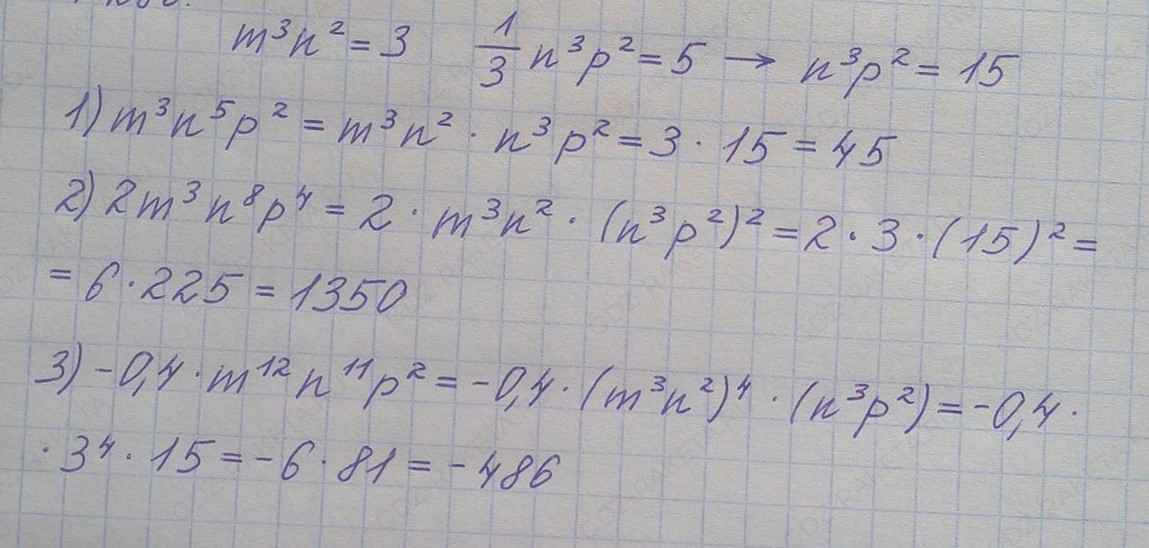 m³n² = 3 1/3 n³p² = 5 → n³p² = 15
1) m³n⁵p² = m³n² · n³p² = 3 · 15 = 45
2) 2m³n⁸p⁴ = 2 · m³n² · (n³p²)² = 2 · 3 · (15)² =
= 6 · 225 = 1350
3) -0,4 · m¹²n¹¹p² = -0,4 · (m³n²)⁴ · (n³p²) = -0,4 ·
· 3⁴ · 15 = -6 · 81 = -486